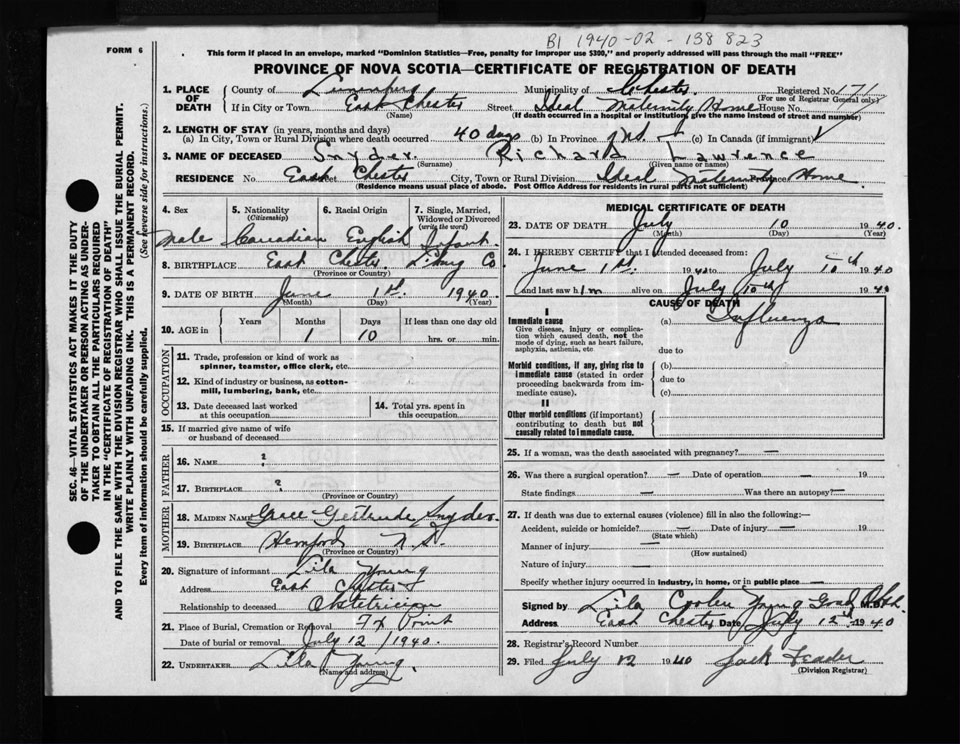 B1 1940-02-138823
FORM 6
This form if placed in an envelope, marked "Dominion Statistics—Free, penalty for improper use $300," and properly addressed will pass through the mail "FREE"
PROVINCE OF NOVA SCOTIA—CERTIFICATE OF REGISTRATION OF DEATH
1. PLACE OF DEATH
County of Lunenburg Municipality of Chester Registered No. 171
(For use of Registrar General only)
If in City or Town East Chester Street Ideal Maternity Home House No.
(Name) (If death occurred in a hospital or institution, give the name instead of street and number)
2. LENGTH OF STAY (in years, months and days)
(a) In City, Town or Rural Division where death occurred 40 days (b) In Province (c) In Canada (if immigrant)
3. NAME OF DECEASED Snyder. Richard Lawrence
(Surname) (Given name or names)
RESIDENCE No. East Chester Street City, Town or Rural Division Ideal Maternity Home. Province
(Residence means usual place of abode. Post Office Address for residents in rural parts not sufficient)
4. Sex
Male
5. Nationality (Citizenship)
Canadian
6. Racial Origin
English
7. Single, Married, Widowed or Divorced (write the word)
Infant.
8. BIRTHPLACE East Chester L'burg Co
(Province or Country)
9. DATE OF BIRTH June 1st. 1940
(Month) (Day) (Year)
10. AGE in Years Months Days If less than one day old
1 10 hrs. or min.
OCCUPATION
11. Trade, profession or kind of work as spinner, teamster, office clerk, etc.
12. Kind of industry or business, as cotton-mill, lumbering, bank, etc.
13. Date deceased last worked at this occupation
14. Total yrs. spent in this occupation
15. If married give name of wife or husband of deceased
FATHER
16. NAME ?
17. BIRTHPLACE ?
(Province or Country)
MOTHER
18. MAIDEN NAME Grace Gertrude Snyder.
19. BIRTHPLACE Hemford N.S.
(Province or Country)
20. Signature of informant Lila Young
Address East Chester
Relationship to deceased Obstetrician
21. Place of Burial, Cremation or Removal Fx Point
Date of burial or removal July 12/1940.
22. UNDERTAKER Lila Young.
(Name and address)
MEDICAL CERTIFICATE OF DEATH
23. DATE OF DEATH July 10 1940
(Month) (Day) (Year)
24. I HEREBY CERTIFY that I attended deceased from:
June 1st. 1940 to July 10th 1940
and last saw him alive on July 10th 1940
CAUSE OF DEATH
I
Immediate cause (a) Influenza
Give disease, injury or complication which caused death, not the mode of dying, such as heart failure, asphyxia, asthenia, etc
due to
Morbid conditions, if any, giving rise to immediate cause (stated in order proceeding backwards from immediate cause).
(b)
due to
(c)
II
Other morbid conditions (if important) contributing to death but not causally related to immediate cause.
25. If a woman, was the death associated with pregnancy? —
26. Was there a surgical operation? — Date of operation — 19
State findings — Was there an autopsy? —
27. If death was due to external causes (violence) fill in also the following:—
Accident, suicide or homicide? — Date of injury — 19
(State which)
Manner of injury —
(How sustained)
Nature of injury —
Specify whether injury occurred in industry, in home, or in public place —
Signed by Lila Young
Address East Chester Date July 12th 1940
28. Registrar's Record Number
29. Filed July 12 1940 Jack
(Division Registrar)
SEC. 46—VITAL STATISTICS ACT MAKES IT THE DUTY
OF THE UNDERTAKER OR PERSON ACTING AS UNDER-
TAKER TO OBTAIN ALL THE PARTICULARS REQUIRED
IN THE "CERTIFICATE OF REGISTRATION OF DEATH"
AND TO FILE THE SAME WITH THE DIVISION REGISTRAR WHO SHALL ISSUE THE BURIAL PERMIT.
WRITE PLAINLY WITH UNFADING INK. THIS IS A PERMANENT RECORD.
Every item of information should be carefully supplied. (See reverse side for instructions.)